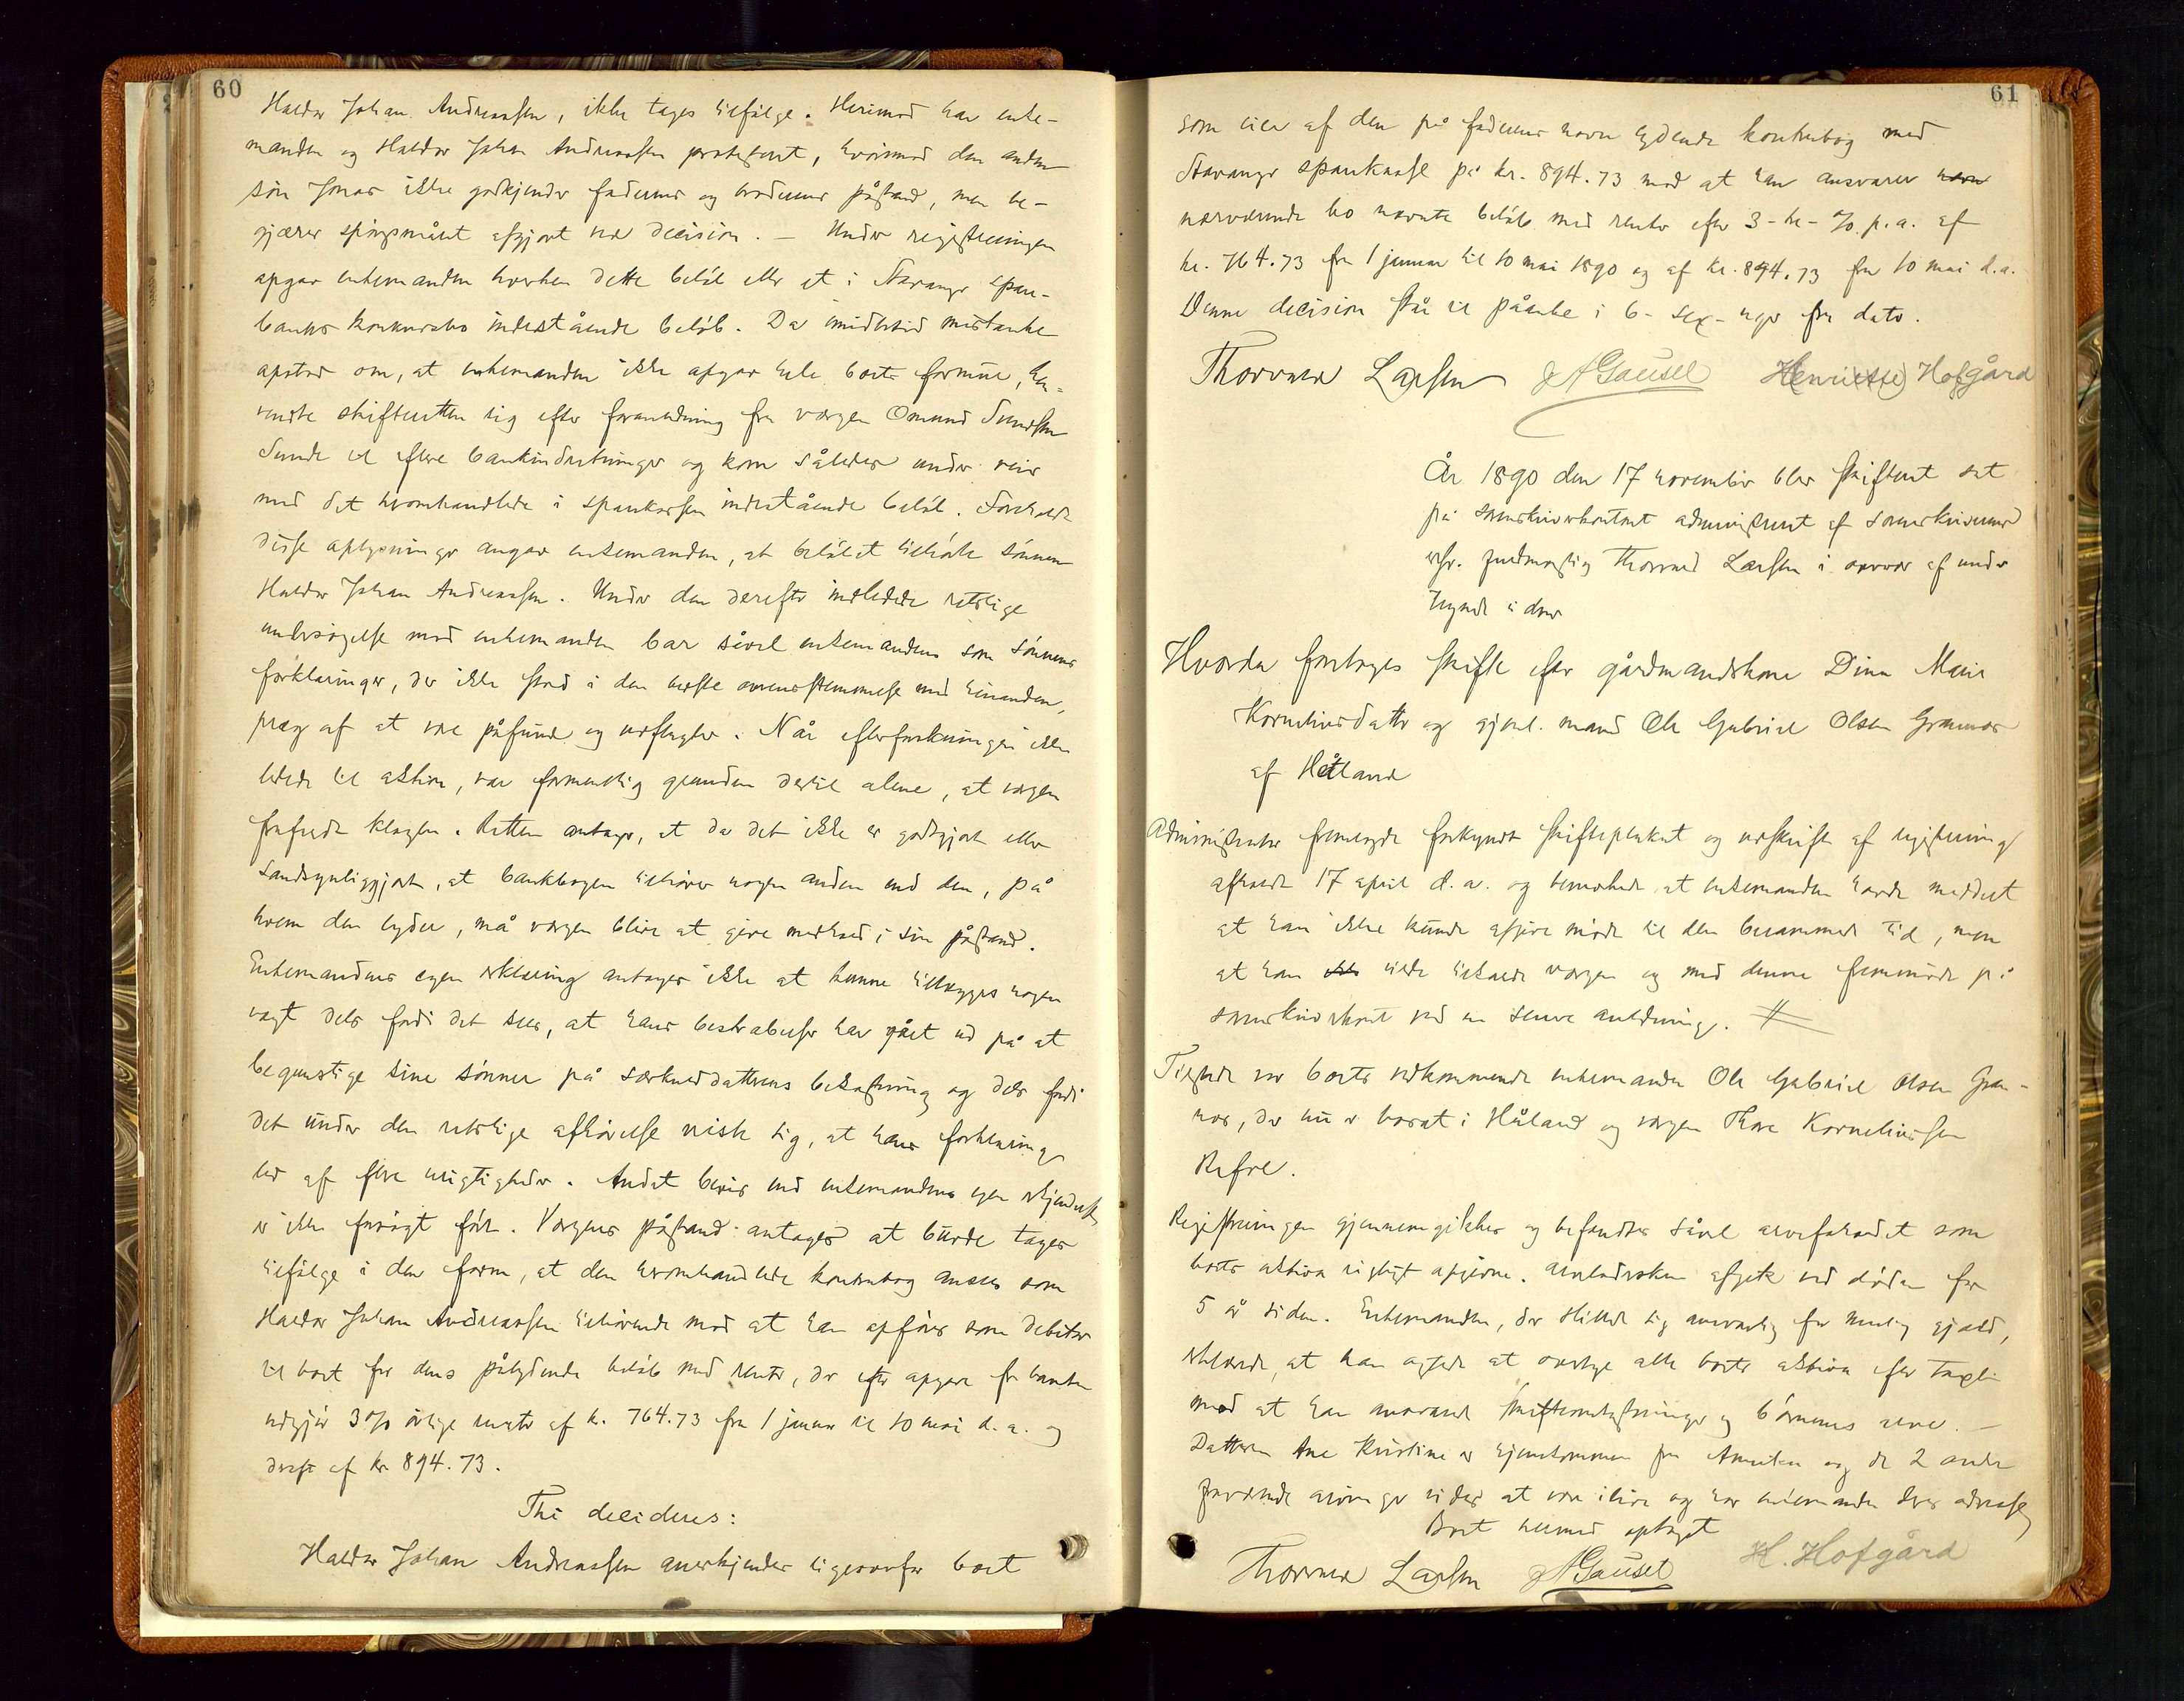 60
Haldor Johan Andreassen, ikke tages tilfølge. Herimod har enke-
manden og Haldor Johan Andreassen protesteret, hvorimod den anden
søn Jonas ikke godkjender faderens og broderens påstand, men be-
gjærer spørgsmålet afgjort ved decision. — Under registreringen
opgav enkemanden hverken dette beløb eller et i Stavanger Spare-
banks konkursbo indestående beløb. Da imidlertid mistanke
opstod om, at enkemanden ikke opgav hele boets formue, hen-
vendte skifteretten sig efter foranledning fra værgen Omund
Sunde til flere bankindretninger og kom således under veir
med det heromhandlede i sparekassen indestående beløb. Foreholdt
disse oplysninger angav enkemanden, at beløbet tilhørte sønnen
Haldor Johan Andreassen. Under den derefter indledede retslige
undersøgelse mod enkemanden bar såvel enkemandens som sønnens
forklaringer, der ikke stod i den bedste overensstemmelse med hinanden,
præg af at være påfund og udflugter. Når efterforskningen ikke
ledede til aktion, var formentlig grunden dertil alene, at værgen
frafaldt klagen. Retten antager, at da det ikke er godtgjort eller
sandsynliggjort, at bankbogen tilhører nogen anden end den, på
hvem den lyder, må værgen blive at give medhold i sin påstand.
Enkemandens egen erklæring antages ikke at kunne tillægges nogen
vægt dels fordi det sees, at hans bestræbelser har gået ud på at
begunstige sine sønner på særkuldatterens bekostning og dels fordi
det under den retslige afhørelse viste sig, at hans forklaring
led af flere urigtigheder. Andet bevis end enkemandens egen erkjendelse
er ikke forsøgt ført. Værgens påstand antages at burde tages
tilfølge i den form, at den heromhandlede kontrabog ansees som
Haldor Johan Andreassen tilhørende mod at han opføres som debitor
til boet for dens pålydende beløb med renter, der efter opgave fra banken
udgjør 3% årlige renter af kr. 764.73 fra 1 januar til 10 mai d. a. og
derefter af kr. 894.73.
Thi decideres:
Haldor Johan Andreassen anerkjendes ligeoverfor boet
61
som eier af den på faderens navn lydende kontrabog med
Stavanger sparekasse på kr. 894.73 mod at han ansvarer
nærværende bo nævnte beløb med renter efter 3 - tre - % p. a. af
kr. 764.73 fra 1 januar til 10 mai 1890 og af kr. 894.73 fra 10 mai d. a.
Denne decision står til påanke i 6 - sex - uger fra dato.
Thorvald Larsen A Gausel Henriette Hofgård
År 1890 den 17 november blev skifteret sat
på sorenskriverkontoret administreret af sorenskriverens
edsv. fuldmægtig Thorvald Larsen i overvær af under
tegnede vidner
Hvorda foretoges skifte efter gårdmandskone Dina Marie
Korneliusdatter og gjenl. mand Ole Gabriel Olsen Grannes
af Håland
Administrator fremlagde forkyndt skifteplakat og udskrift af registrering
afholdt 17 april d. a. og bemærkede at enkemanden havde meddelt
at han ikke kunde afgive møde til den berammede tid, men
at han vilde tilkalde værgen og med denne fremmøde på
sorenskriverkontoret ved en senere anledning.
Tilstede var boets vedkommende enkemanden Ole Gabriel Olsen Gran-
nes, der nu er bosat i Håland og værgen Thore Korneliussen
Refve.
Registreringen gjennemgikkes og befandtes såvel arveforholdet som
boets aktiva rigtigt opgivne. Arveladersken afgik ved døden for
5 år siden. Enkemanden, der stillede sig ansvarlig for mulig gjæld,
erklærede, at han agtede at overtage alle boets aktiva efter taxten
mod at han ansvared skifteomkostninger og børnenes arve. —
Datteren Ane Kristine er hjemkommen fra Amerika og de 2 andre
fraværende arvinger vides at være i live og har enkemanden deres adresse
Boet hermed optaget
Thorvald Larsen A Gausel H. Hofgård